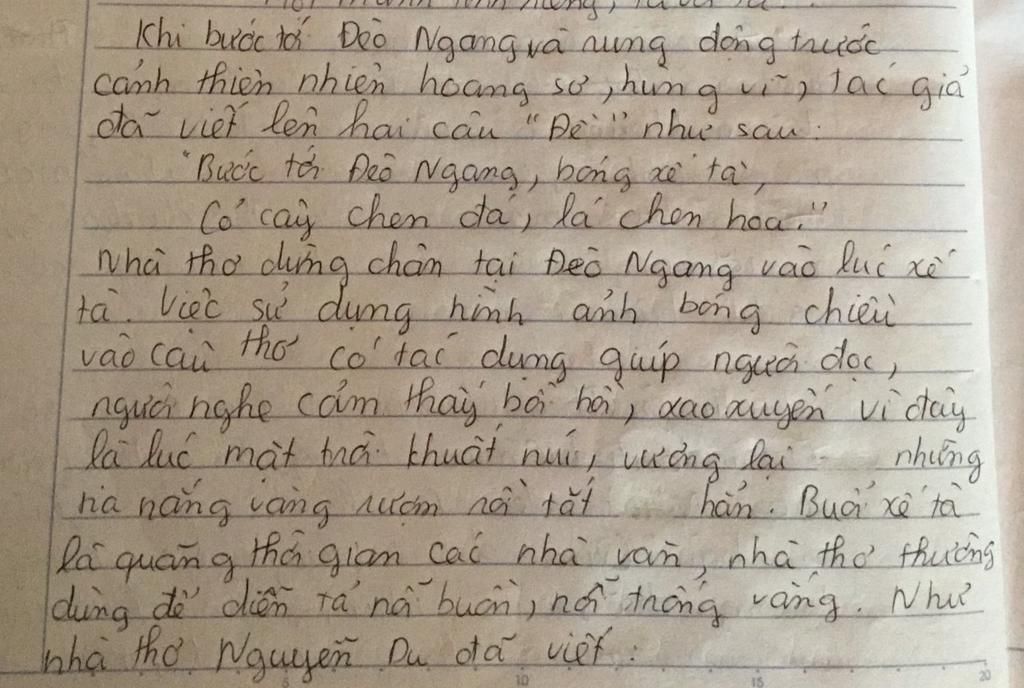 Khi bước tới Đèo Ngang và rung động trước
cảnh thiên nhiên hoang sơ, hùng vĩ, tác giả
đã viết lên hai câu "Đề" như sau:
"Bước tới Đèo Ngang, bóng xế tà,
Cỏ cây chen đá, lá chen hoa."
Nhà thơ dừng chân tại Đèo Ngang vào lúc xế
tà. Việc sử dụng hình ảnh bóng chiều
vào câu thơ có tác dụng giúp người đọc,
người nghe cảm thấy bồi hồi, xao xuyến vì đây
là lúc mặt trời khuất núi, vương lại những
tia nắng vàng rượm rồi tắt hẳn. Buổi xế tà
là quãng thời gian các nhà văn, nhà thơ thường
dùng để diễn tả nỗi buồn, nỗi trống vắng. Như
nhà thơ Nguyễn Du đã viết:
5 10 15 20